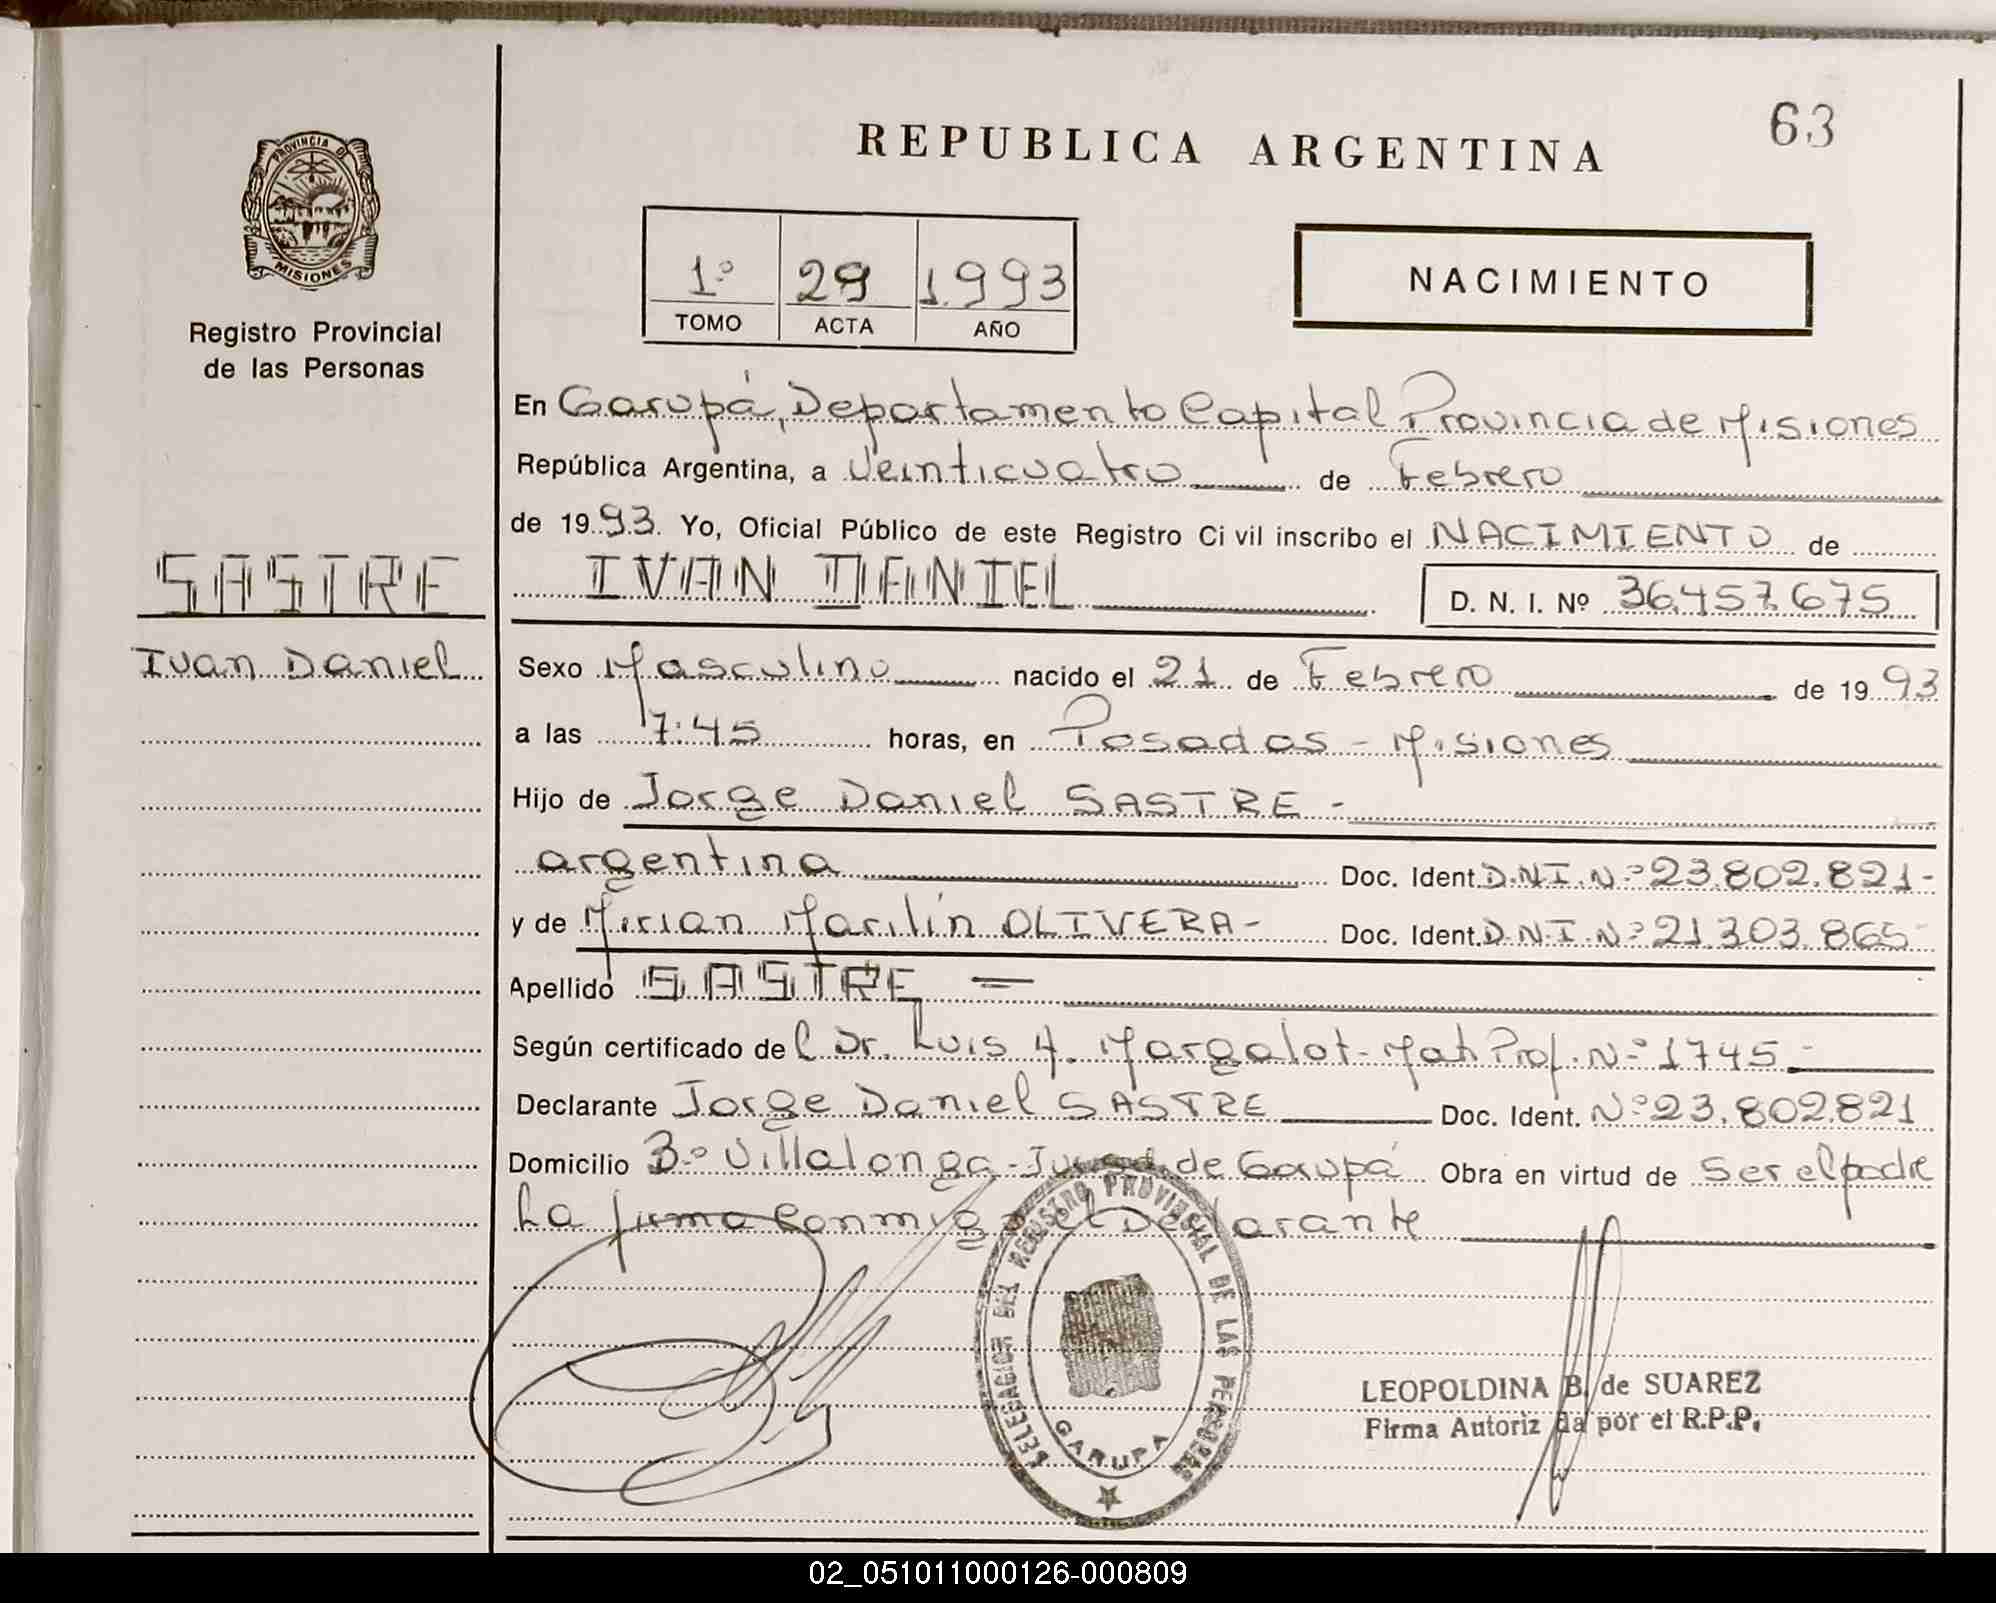 63
REPUBLICA ARGENTINA
PROVINCIA DE
MISIONES
Registro Provincial
de las Personas
1º 29 1.993
TOMO ACTA AÑO
NACIMIENTO
En Garupá, Departamento Capital Provincia de Misiones
República Argentina, a Veinticuatro de Febrero
de 1993. Yo, Oficial Público de este Registro Civil inscribo el NACIMIENTO de
SASTRE
IVAN DANIEL D. N. I. Nº 36.457.675
Ivan Daniel
Sexo Masculino nacido el 21 de Febrero de 1993
a las 7:45 horas, en Posadas - Misiones
Hijo de Jorge Daniel SASTRE -
argentina Doc. Ident. D.N.I. Nº 23.802.821-
y de Mirian Marilín OLIVERA- Doc. Ident. D.N.I. Nº 21.303.865-
Apellido SASTRE =
Según certificado del Dr. Luis A. Margalot - Mat. Prof. Nº 1745.-
Declarante Jorge Daniel SASTRE Doc. Ident. Nº 23.802.821
Domicilio Bº Villalonga - Jurisd. de Garupá Obra en virtud de Ser el padre
La firma Conmigo el Declarante
DELEGACION DEL REGISTRO PROVINCIAL DE LAS PERSONAS
GARUPA
LEOPOLDINA B. de SUAREZ
Firma Autorizada por el R.P.P.
02_051011000126-000809